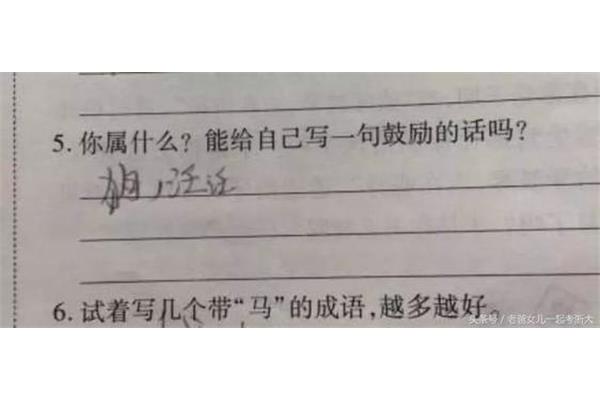 5. 你属什么？能给自己写一句鼓励的话吗？
汪汪
6. 试着写几个带“马”的成语,越多越好。
头条号 / 老爸女儿一起考浙大